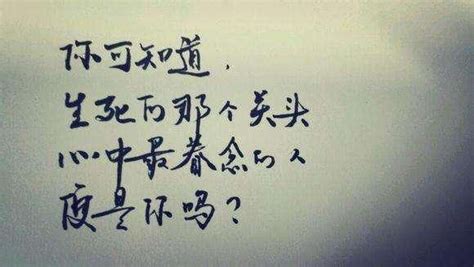 你可知道，
生死的那个关头
心中最眷念的人
便是你吗？